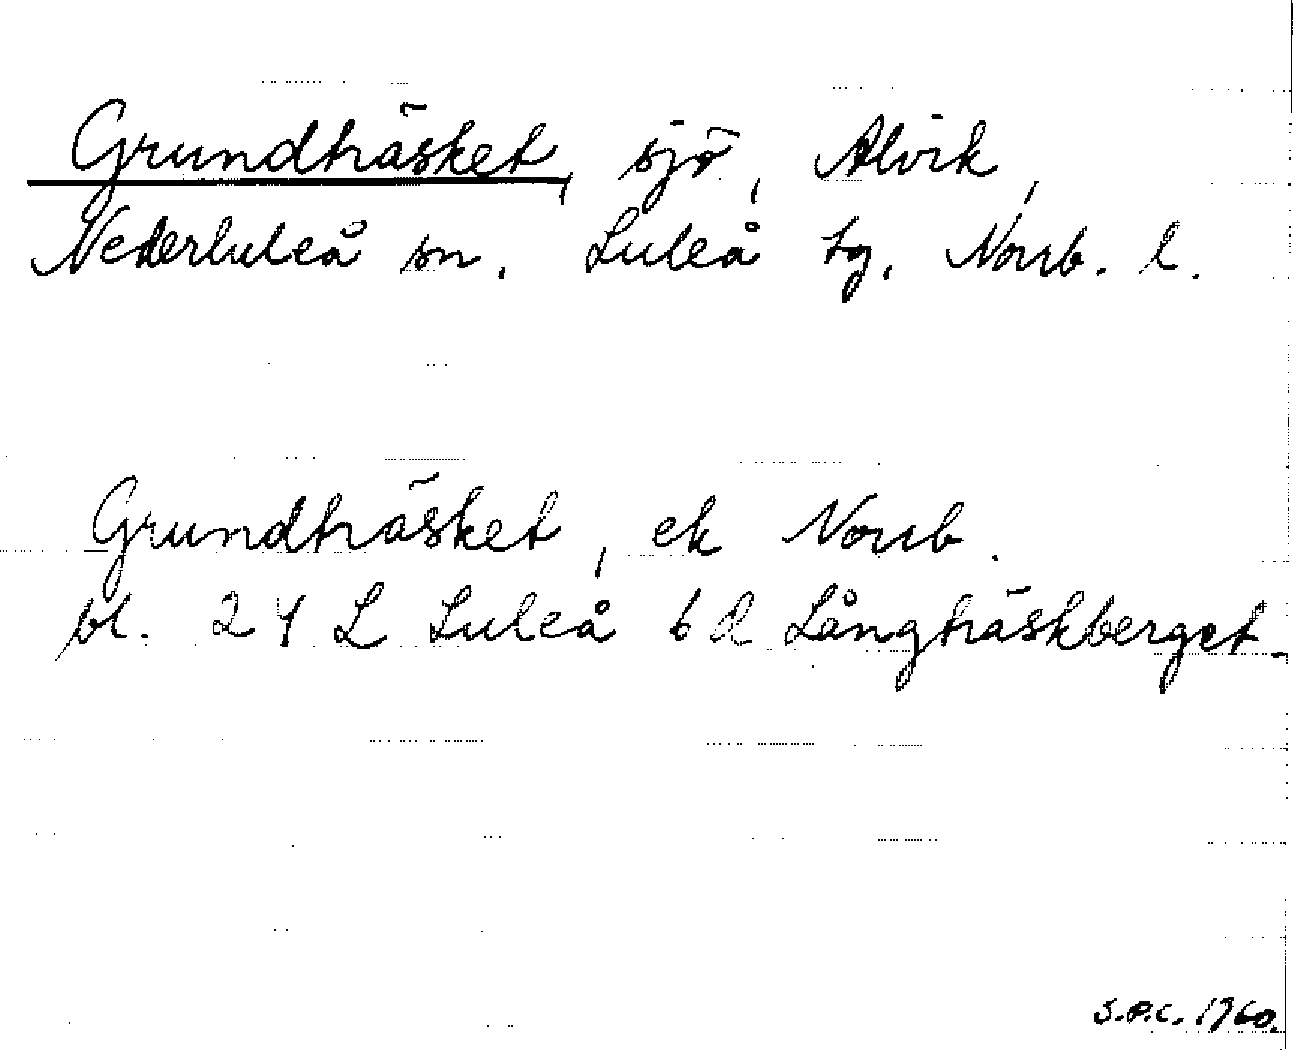 Grundträsket, sjö, Alvik,
Nederluleå sn. Luleå tg. Norrb. l.
Grundträsket, ek Norrb.
bl. 24 L Luleå 6 d Långträskberget
S.P.C. 1960.